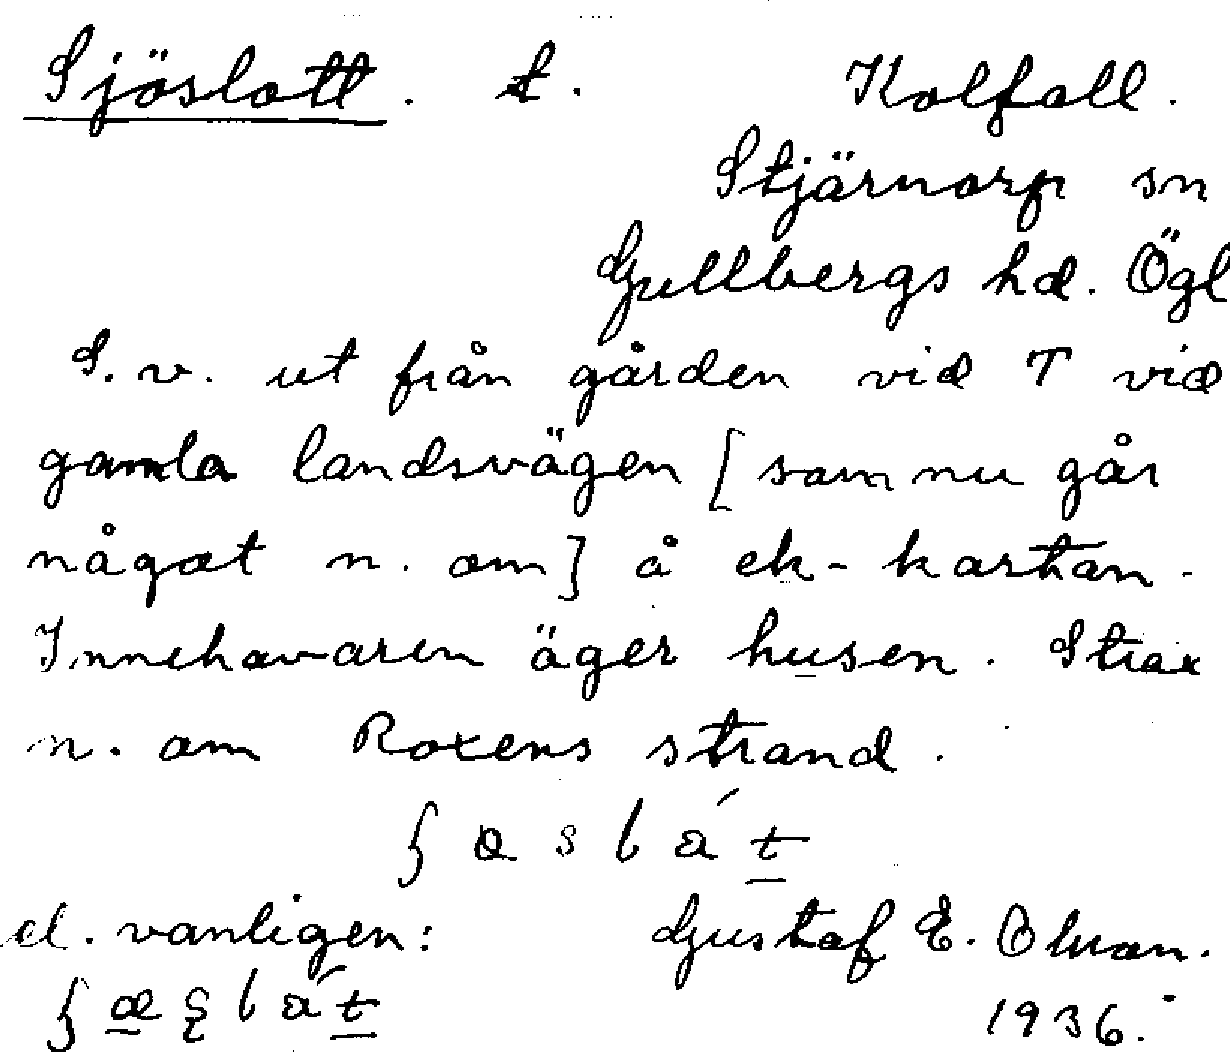 Sjöslott. t. Kolfall.
Stjärnorp sn
Gullbergs hd. Ögl
S. v. ut från gården vid T vid
gamla landsvägen [som nu går
något n. om] å ek-kartan.
Innehavaren äger husen. Strax
n. om Roxens strand.
el. vanligen: Gustaf E.
1936.